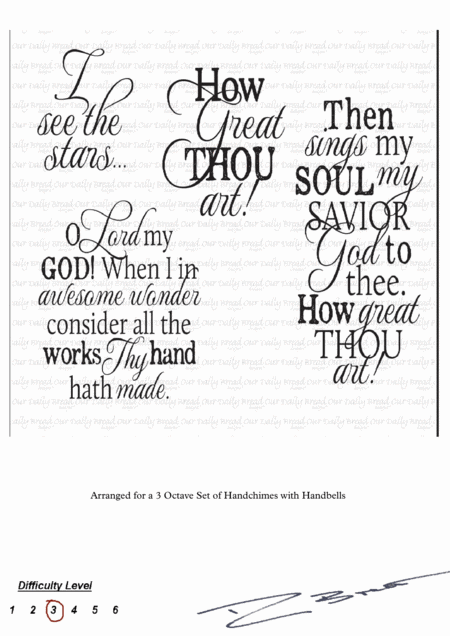 I
see the
stars...
How
Great
THOU
art!
Then
sings my
SOUL my
SAVIOR
God to
thee.
How great
THOU
art!
O Lord my
GOD! When I in
awesome wonder
consider all the
works Thy hand
hath made.
Arranged for a 3 Octave Set of Handchimes with Handbells
Difficulty Level
1 2 3 4 5 6